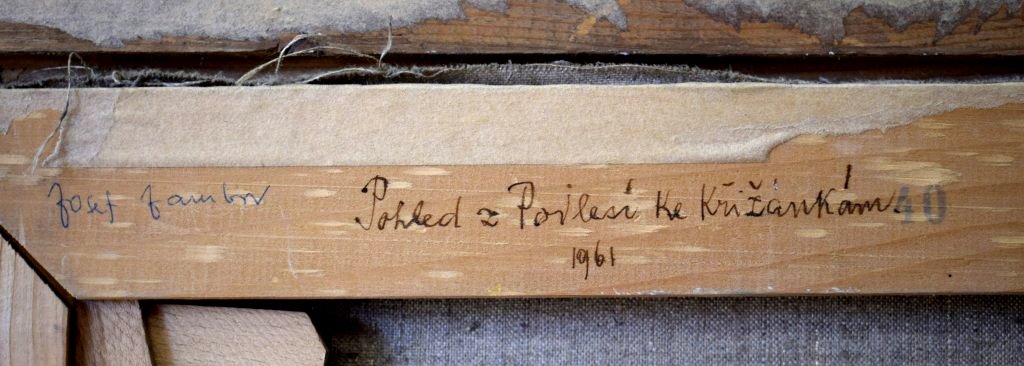 Josef Jambor Pohled z Podlesí ke Křižánkám. 40
1961